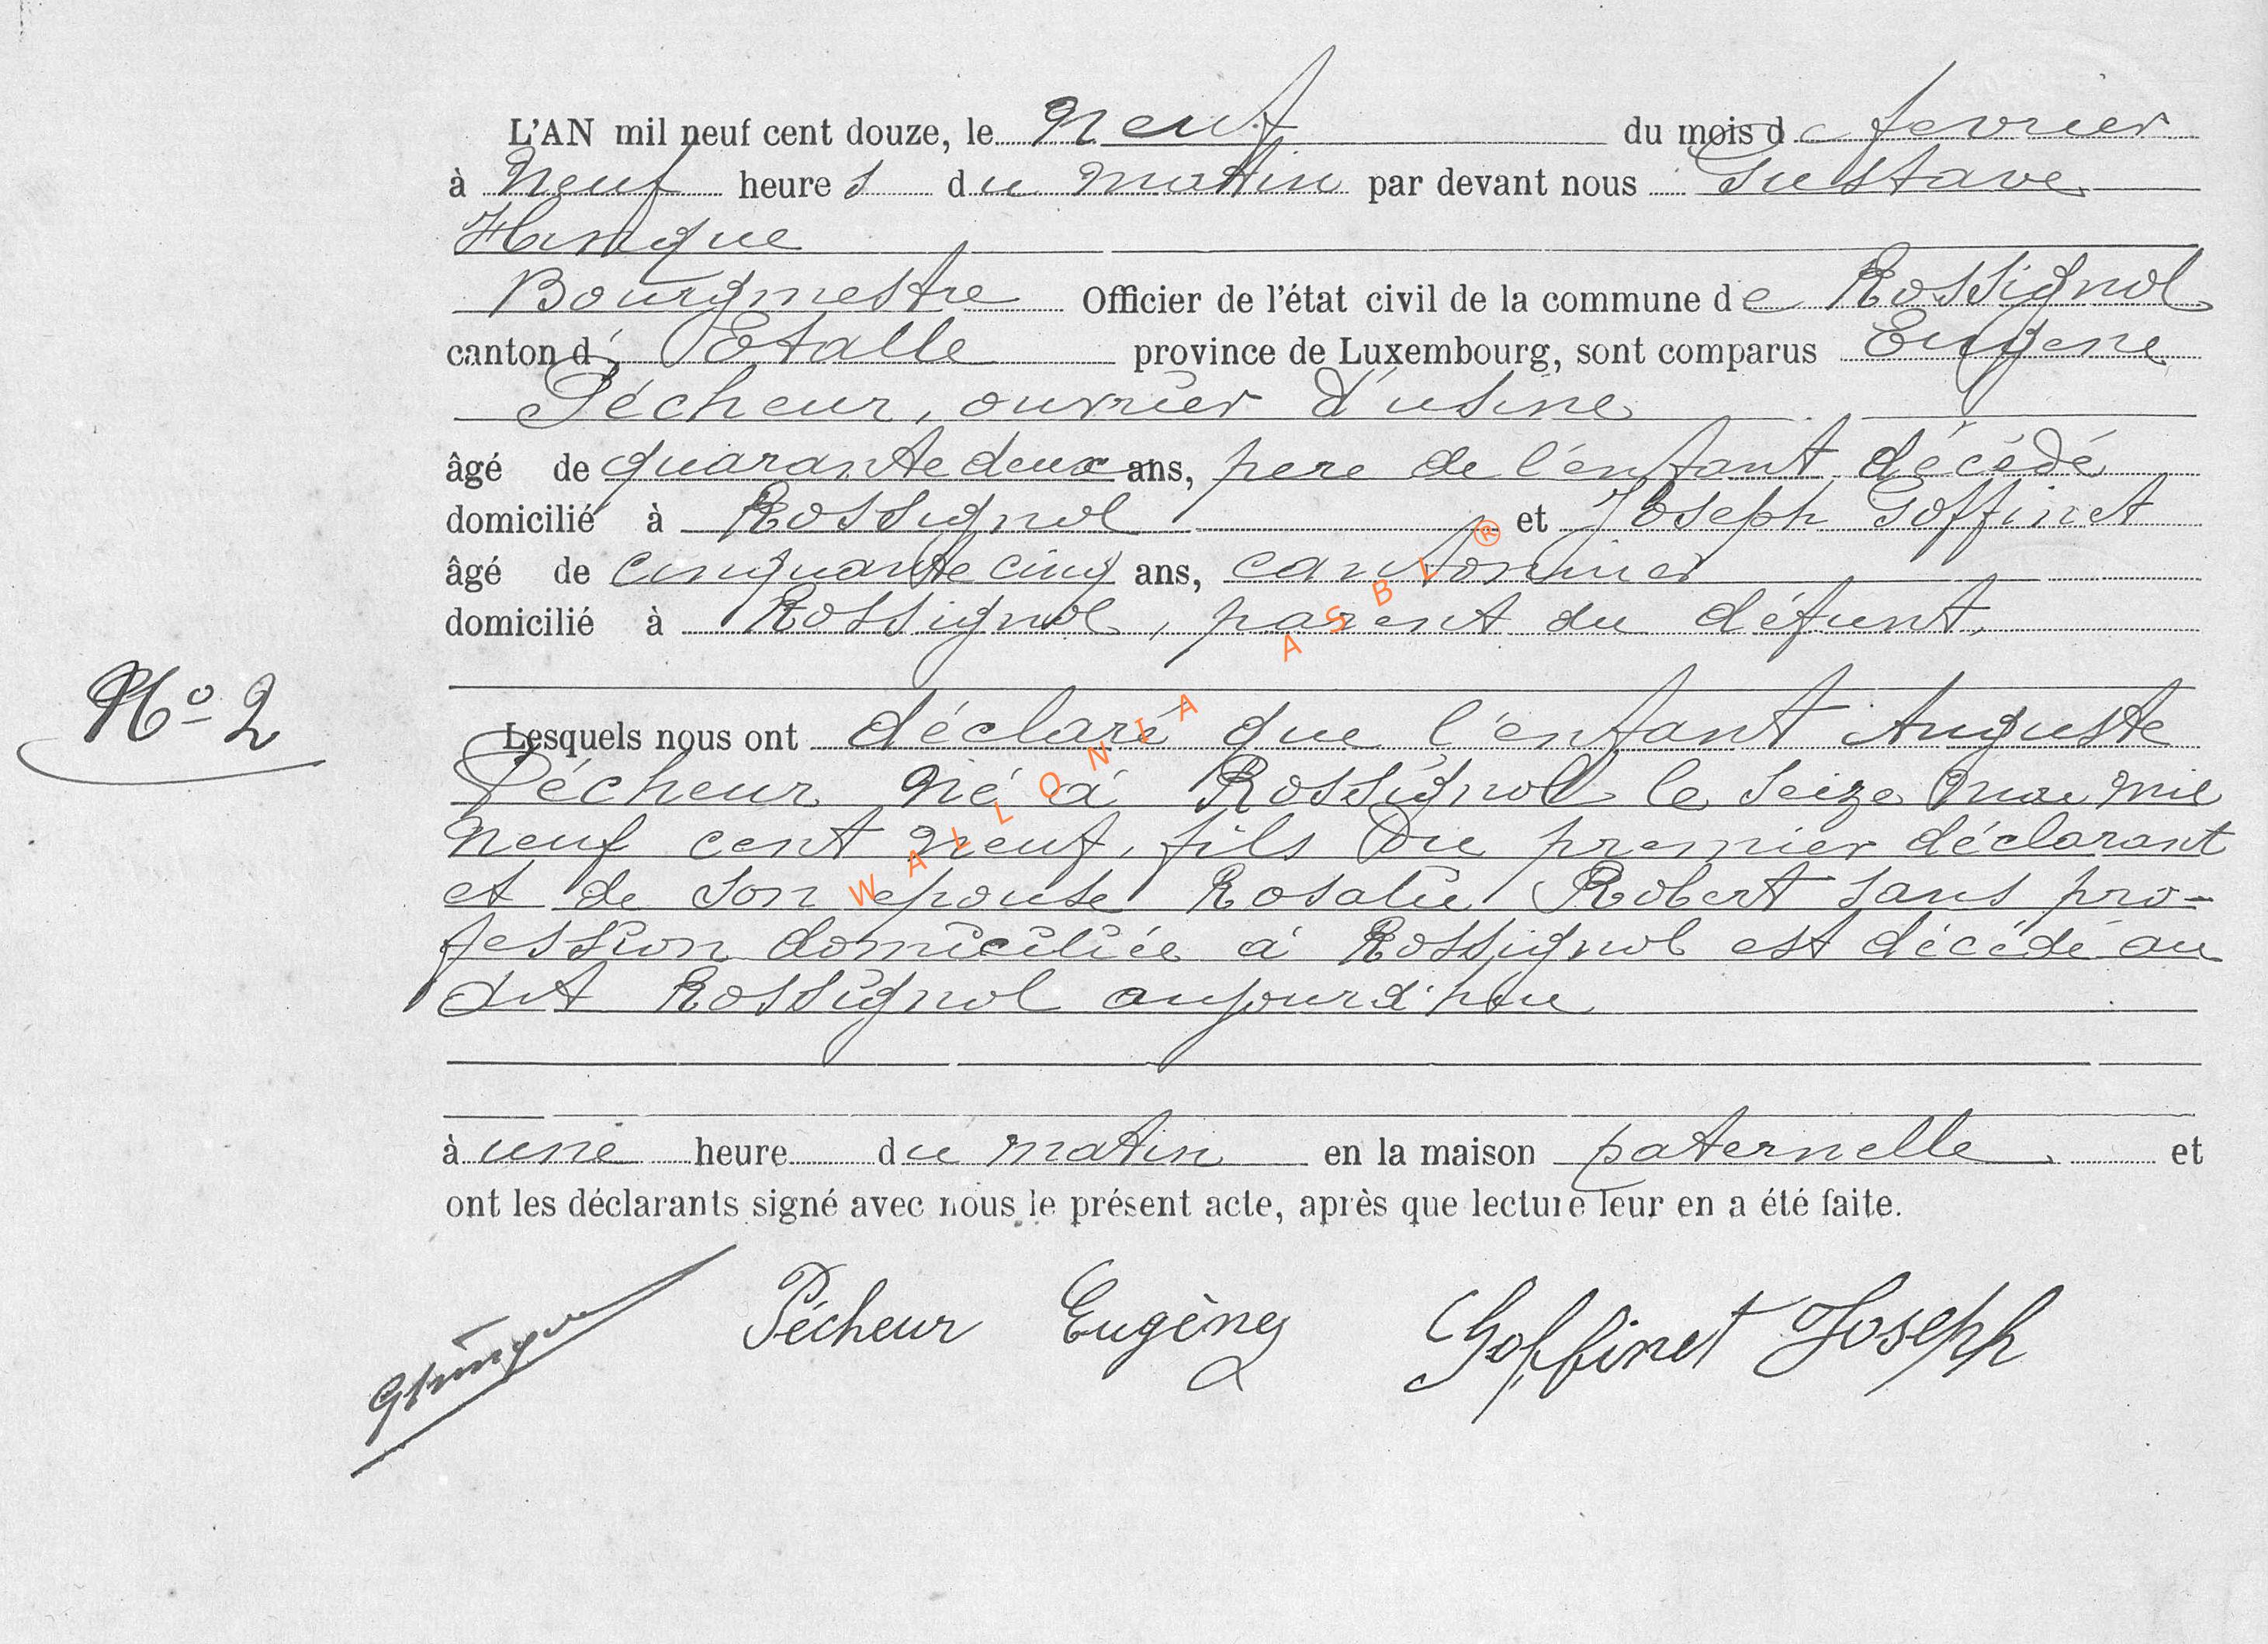 L'AN mil neuf cent douze, le neuf du mois de fevrier
à neuf heures du matin par devant nous Gustave
Hanique
Bourgmestre Officier de l'état civil de la commune de Rossignol
canton d'Etalle province de Luxembourg, sont comparus Eugene
Pécheur, ouvrier d'usine
âgé de quarante deux ans, pere de l'enfant décédé
domicilié à Rossignol et Joseph Goffinet
âgé de cinquante cinq ans, cantonnier
domicilié à Rossignol, parent du défunt,
N° 2
Lesquels nous ont déclaré que l'enfant Auguste
Pécheur né à Rossignol le seize mai mil
neuf cent neuf, fils du premier déclarant
et de son epouse Rosalie Robert sans pro-
fession domiciliée à Rossignol est décédé au
dit Rossignol aujourd'hui
à une heure du matin en la maison paternelle et
ont les déclarants signé avec nous le présent acte, après que lecture leur en a été faite.
Pécheur Eugène Goffinet Joseph
WALLONIA ASBL ®